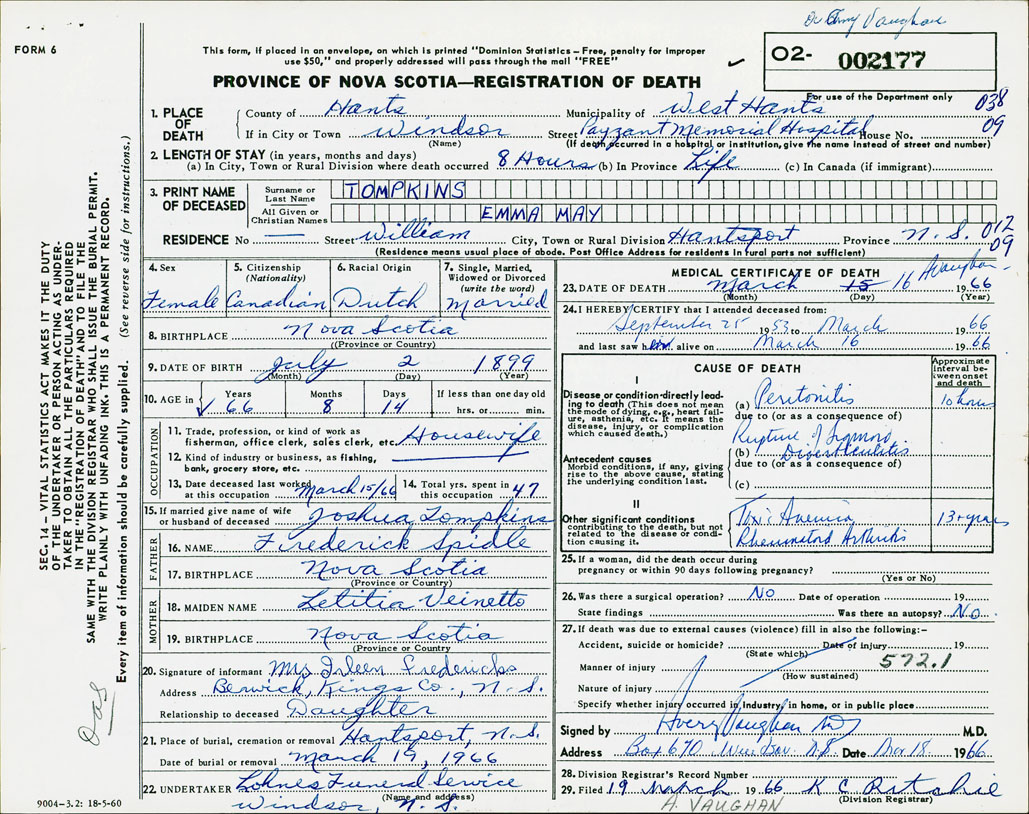 Vaughan
FORM 6
This form, if placed in an envelope, on which is printed "Dominion Statistics – Free, penalty for improper
use $50," and properly addressed will pass through the mail "FREE"
O2- 002177
PROVINCE OF NOVA SCOTIA—REGISTRATION OF DEATH
For use of the Department only
038
09
1. PLACE OF DEATH
County of Hants Municipality of West Hants
If in City or Town Windsor Street Payzant Memorial Hospital House No.
(Name) (If death occurred in a hospital or institution, give the name instead of street and number)
2. LENGTH OF STAY (in years, months and days)
(a) In City, Town or Rural Division where death occurred 8 Hours (b) In Province Life (c) In Canada (if immigrant)
3. PRINT NAME OF DECEASED
Surname or Last Name TOMPKINS
All Given or Christian Names EMMA MAY
RESIDENCE No — Street William City, Town or Rural Division Hantsport Province N. S. 012
09
(Residence means usual place of abode. Post Office Address for residents in rural parts not sufficient)
4. Sex
Female
5. Citizenship
(Nationality)
Canadian
6. Racial Origin
Dutch
7. Single, Married,
Widowed or Divorced
(write the word)
Married
8. BIRTHPLACE Nova Scotia
(Province or Country)
9. DATE OF BIRTH July 2 1899
(Month) (Day) (Year)
10. AGE in Years Months Days If less than one day old
66 8 14 hrs. or min.
OCCUPATION
11. Trade, profession, or kind of work as
fisherman, office clerk, sales clerk, etc. Housewife
12. Kind of industry or business, as fishing,
bank, grocery store, etc.
13. Date deceased last worked
at this occupation March 15/66
14. Total yrs. spent in
this occupation 47
15. If married give name of wife
or husband of deceased Joshua Tompkins
FATHER
16. NAME Frederick Spidle
17. BIRTHPLACE Nova Scotia
(Province or Country)
MOTHER
18. MAIDEN NAME Letitia Veinotto
19. BIRTHPLACE Nova Scotia
(Province or Country)
20. Signature of informant Mrs Irleen Fredericks
Address Berwick, Kings Co., N. S.
Relationship to deceased Daughter
21. Place of burial, cremation or removal Hantsport, N.S.
Date of burial or removal March 19, 1966
22. UNDERTAKER Lohnes Funeral Service
(Name and address)
Windsor, N. S.
MEDICAL CERTIFICATE OF DEATH
AVaughan
23. DATE OF DEATH March 15 16 1966
(Month) (Day) (Year)
24. I HEREBY CERTIFY that I attended deceased from:
September 25 1953 to March 1966
and last saw her alive on March 16 1966
CAUSE OF DEATH
Approximate interval between onset and death
I
Disease or condition directly leading
to death (This does not mean
the mode of dying, e.g., heart failure,
asthenia, etc. It means the
disease, injury, or complication
which caused death.)
(a) Peritonitis 10 hours
due to (or as a consequence of)
Rupture of Sigmoid
(b) Diverticulitis
due to (or as a consequence of)
(c)
Antecedent causes
Morbid conditions, if any, giving
rise to the above cause, stating
the underlying condition last.
II
Other significant conditions
contributing to the death, but not
related to the disease or condition
causing it.
Toxic Anemia 13+ years
Rheumatoid Arthritis
25. If a woman, did the death occur during
pregnancy or within 90 days following pregnancy?
(Yes or No)
26. Was there a surgical operation? No Date of operation 19
State findings Was there an autopsy? No
27. If death was due to external causes (violence) fill in also the following:-
Accident, suicide or homicide? Date of injury 19
(State which)
572.1
Manner of injury
(How sustained)
Nature of injury
Specify whether injury occurred in industry, in home, or in public place
Signed by Avery Vaughan MD M.D.
Address Box 670 Windsor N.S. Date Mar 18 1966
28. Division Registrar's Record Number
29. Filed 19 March 1966 K C Ritchie
(Division Registrar)
A. VAUGHAN
SEC. 14– VITAL STATISTICS ACT MAKES IT THE DUTY
OF THE UNDERTAKER OR PERSON ACTING AS UNDERTAKER
TO OBTAIN ALL THE PARTICULARS REQUIRED
IN THE "REGISTRATION OF DEATH" AND TO FILE THE
SAME WITH THE DIVISION REGISTRAR WHO SHALL ISSUE THE BURIAL PERMIT.
WRITE PLAINLY WITH UNFADING INK. THIS IS A PERMANENT RECORD.
Every item of information should be carefully supplied. (See reverse side for instructions.)
9004–3.2: 18-5-60